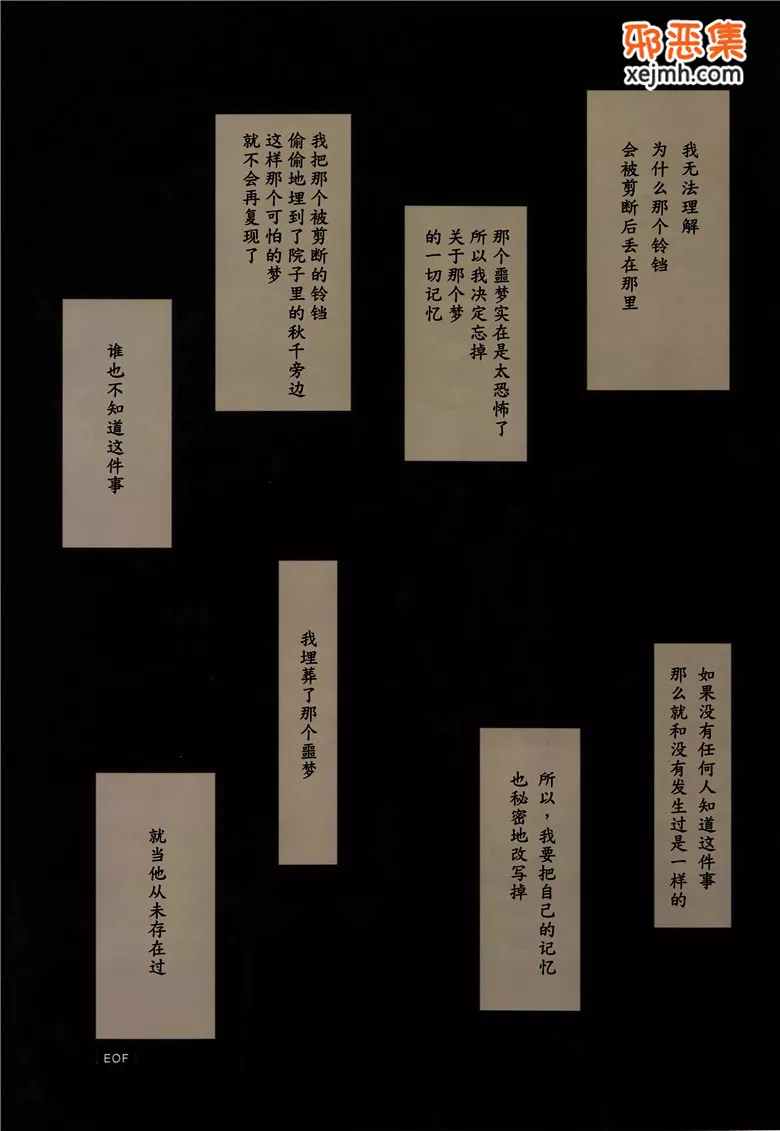 邪恶集
xejmh.com
我无法理解
为什么那个铃铛
会被剪断后丢在那里
那个噩梦实在是太恐怖了
所以我决定忘掉
关于那个梦
的一切记忆
我把那个被剪断的铃铛
偷偷地埋到了院子里的秋千旁边
这样那个可怕的梦
就不会再复现了
谁也不知道这件事
如果没有任何人知道这件事
那么就和没有发生过是一样的
所以，我要把自己的记忆
也秘密地改写掉
我埋葬了那个噩梦
就当他从未存在过
EOF